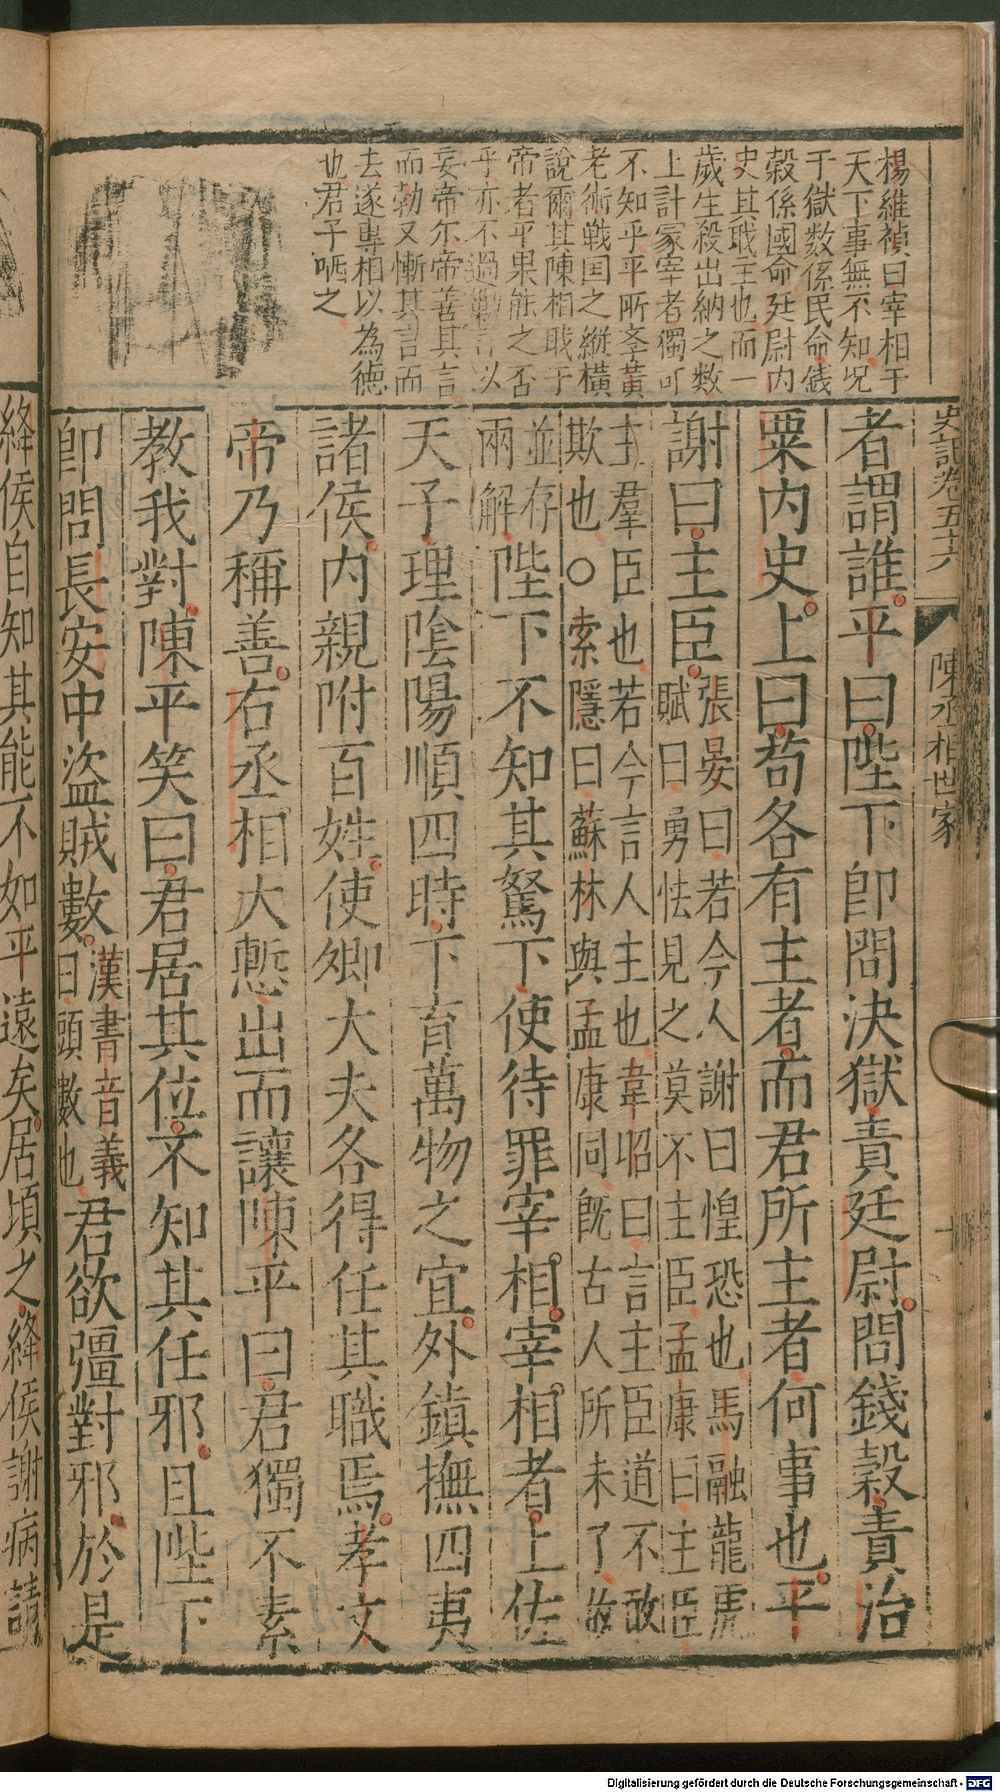 楊維禎曰宰相于
天下事無不知况
于獄数係民命銭
穀係國命廷尉内
史其職主也而一
歲生殺出納之数
上計冢宰者獨可
不知乎平所李黄
老術戦国之縦横
說爾其陳相戝于
帝者平果能之否
乎亦不過以
妄帝尔帝善其言
而勃又慚其言而
去遂專相以為德
也君子哂之
史記卷五十六
陳丞相世家
者謂誰平曰陛下卽問決獄責廷尉問錢穀責治
粟内史上曰苟各有主者而君所主者何事也平
謝曰主臣
張晏曰若今人謝曰惶恐也馬融龍虎
賦曰勇怯見之莫不主臣孟康曰主臣
主羣臣也若今言人主也韋昭曰言主臣道不敢
欺也○索隱曰蘇林與孟康同旣古人所未了故
並存
兩解
陛下不知其駑下使待罪宰相宰相者上佐
天子理陰陽順四時下育萬物之宜外鎮撫四夷
諸侯内親附百姓使卿大夫各得任其職焉孝文
帝乃稱善右丞相大慙出而讓陳平曰君獨不素
教我對陳平笑曰君居其位不知其任邪且陛下
卽問長安中盜賊數
漢書音義
曰頭數也
君欲彊對邪於是
絳侯自知其能不如平遠矣居頃之絳侯謝病請
Digitalisierung gefördert durch die Deutsche Forschungsgemeinschaft - DFG